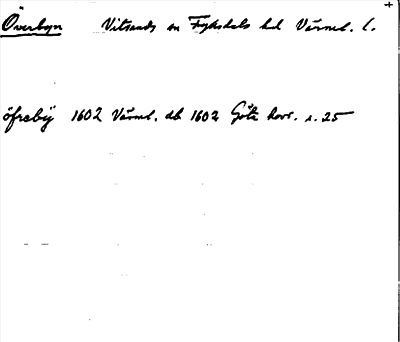 Överbyn Vitsands sn Fryksdals hd Värml. l.
öfrebÿ 1602 Värml. db 1602 Göta hovr. s. 25